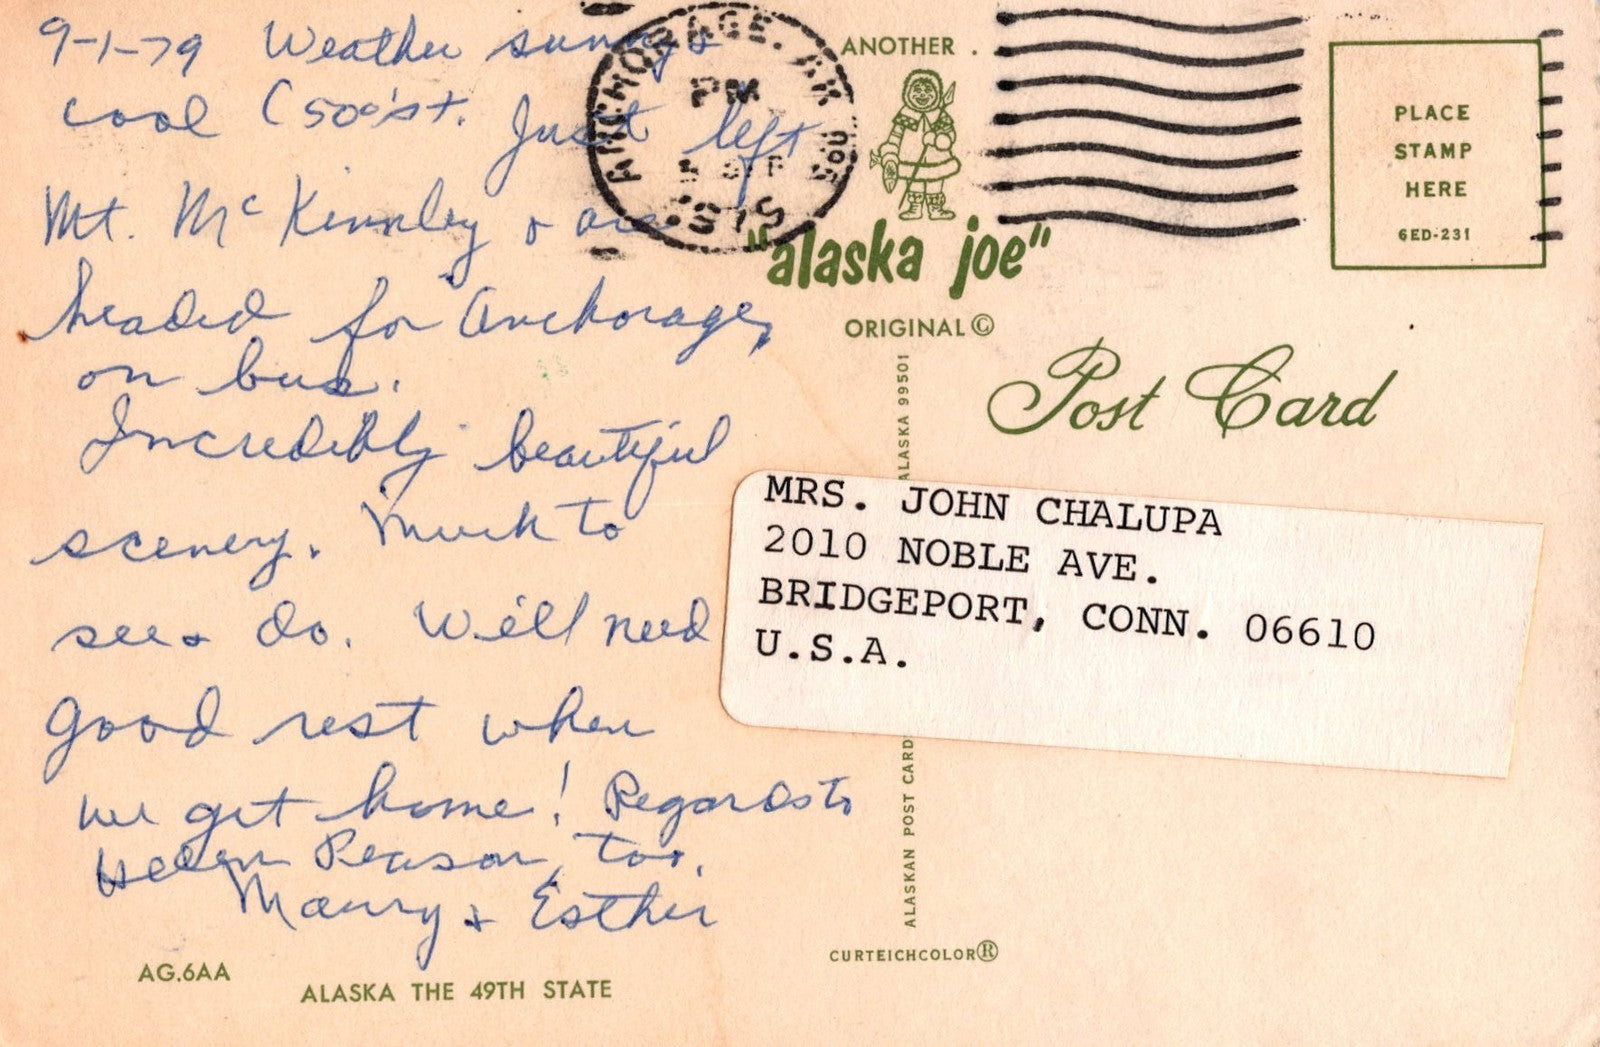 9-1-79 Weather sunny &
cool (50°'s±. Just left
Mt. McKinnley & are
headed for Anchorage,
on bus.
Incredibly beautiful
scenery. Much to
see & do. We'll need
good rest when
we get home! Regards to
Helen Pearson, too.
Maury & Esther
AG.6AA
ALASKA THE 49TH STATE
ANCHORAGE, AK
PM
5 SEP
ANOTHER
"alaska joe"
ORIGINAL©
ALASKAN POST CARD
ALASKA 99501
CURTEICHCOLOR®
PLACE
STAMP
HERE
6ED-231
Post Card
MRS. JOHN CHALUPA
2010 NOBLE AVE.
BRIDGEPORT, CONN. 06610
U.S.A.